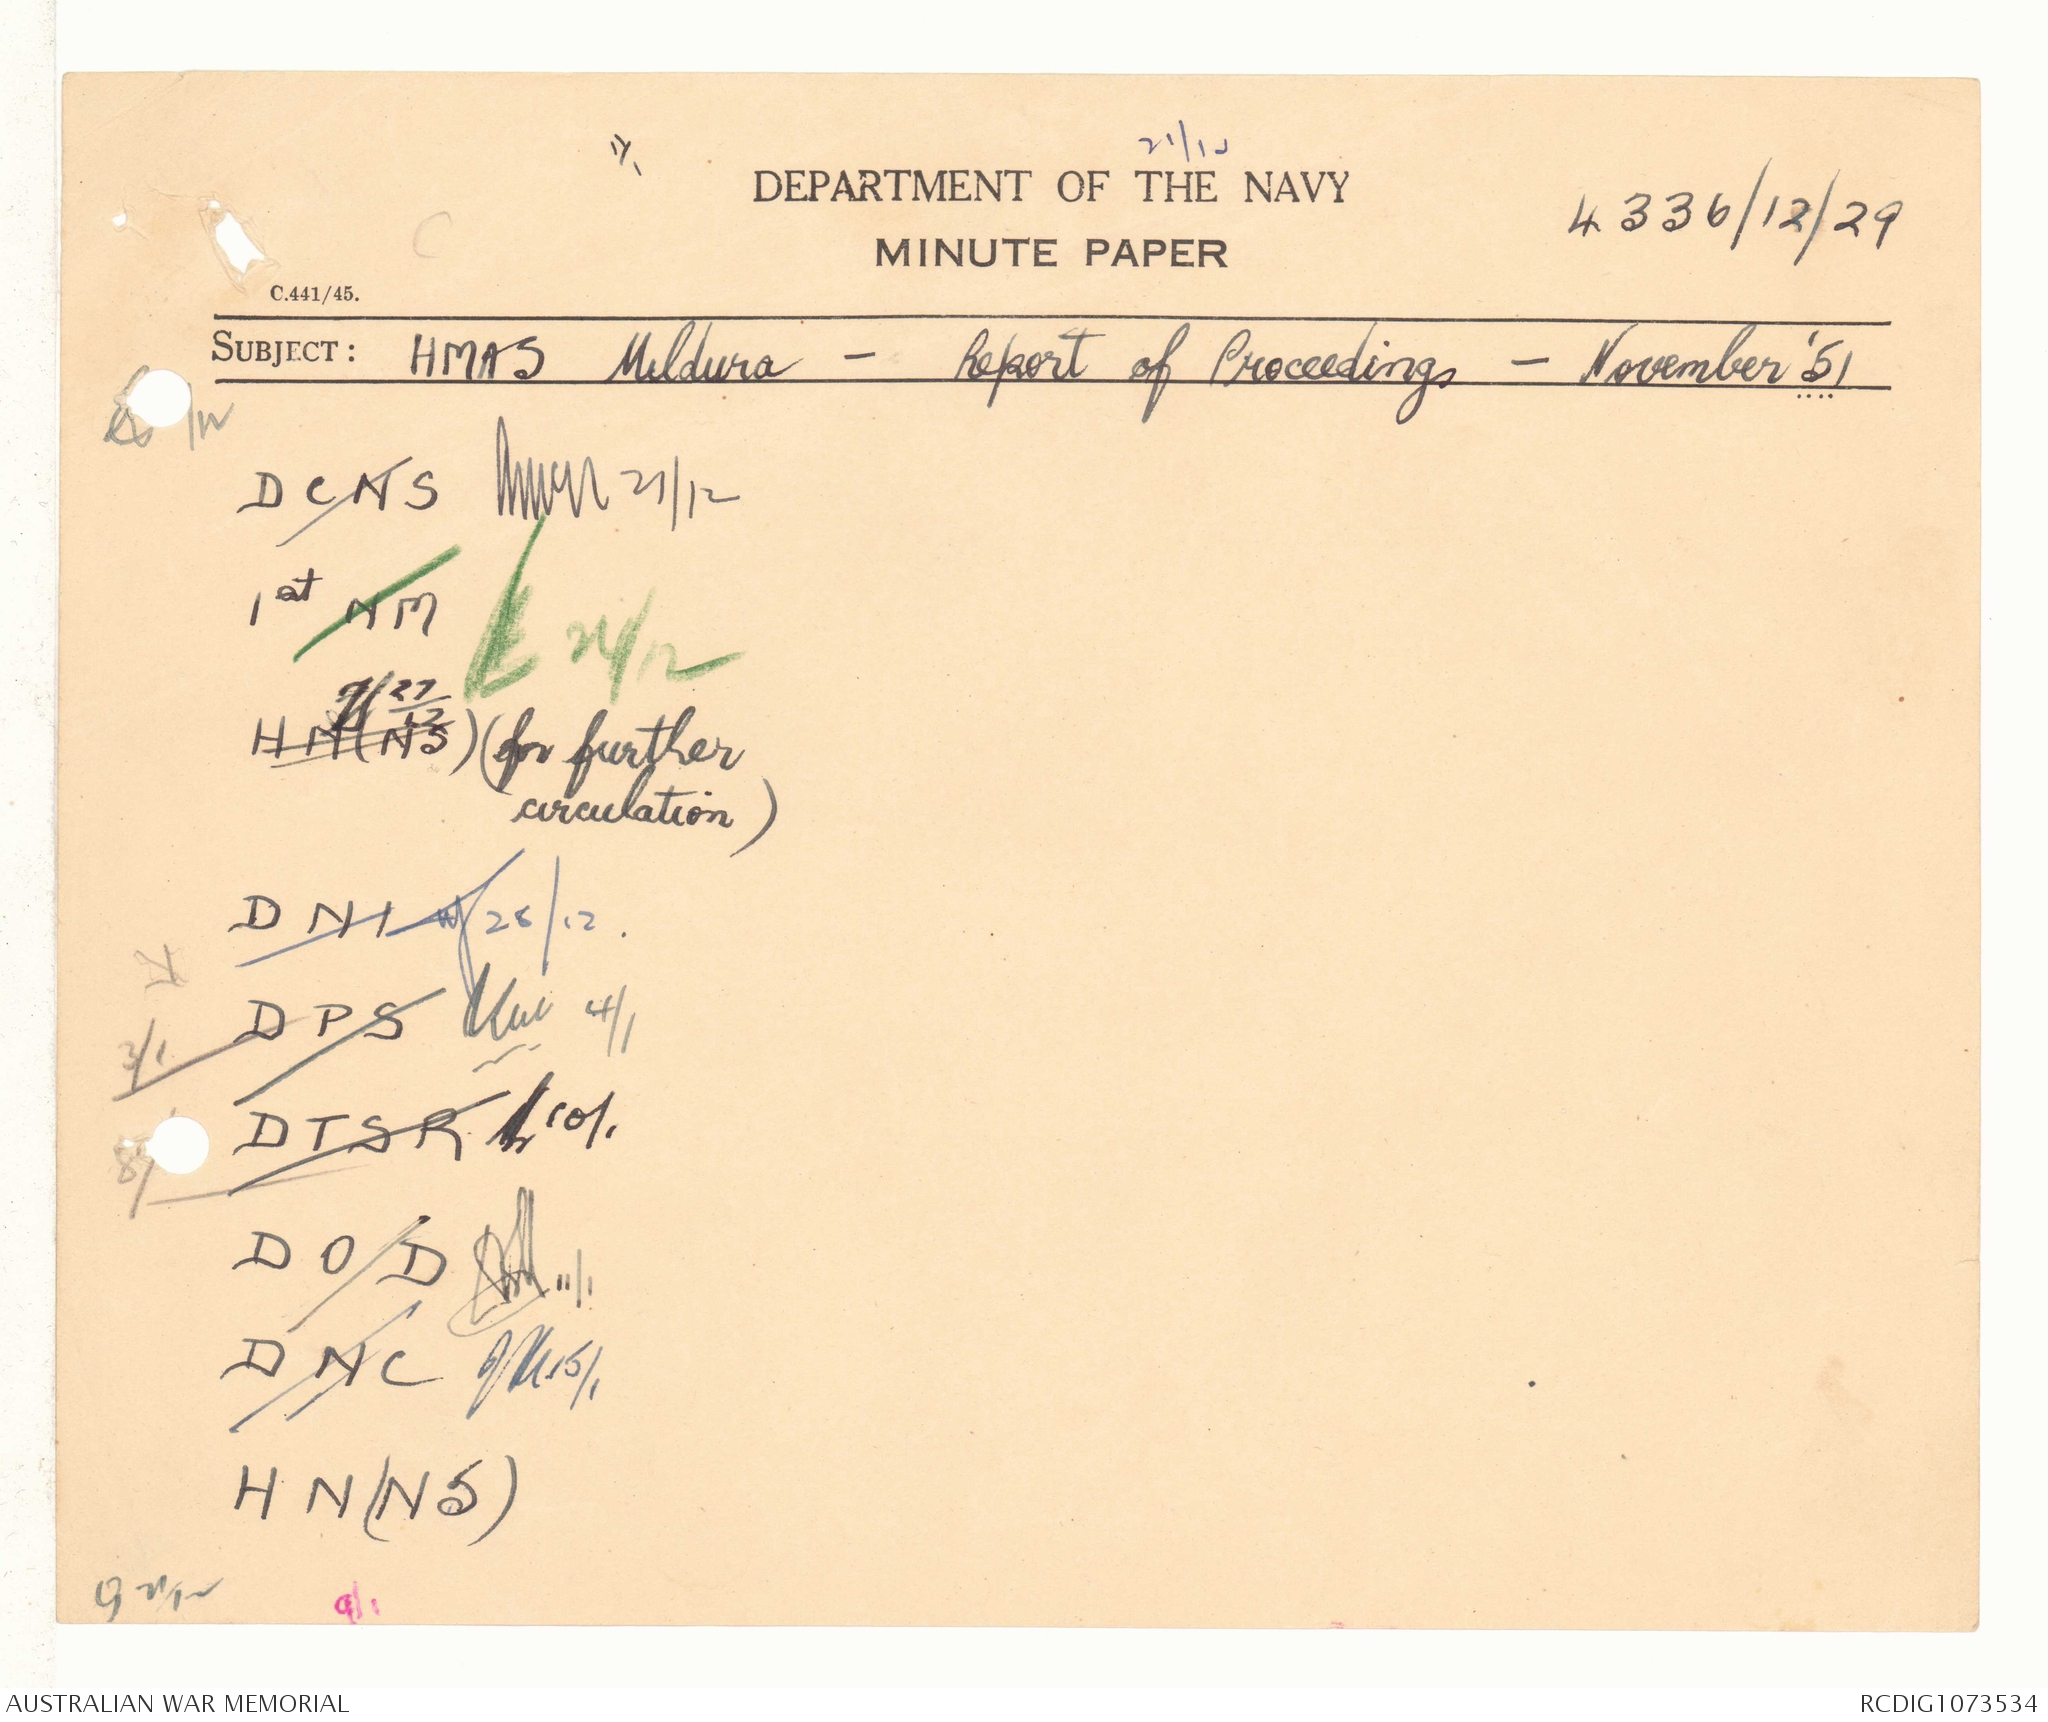 21/12
DEPARTMENT OF THE NAVY
4336/12/29
MINUTE PAPER
C.441/45.
SUBJECT: HMAS Mildura - Report of Proceedings - November '51
/12
DCNS 21/12
1st NM 24/12
27/12
HN(NS) (for further
circulation)
DNI 28/12.
DPS 4/1
3/1
DTSR 10/1
8/
DOD 11/1
DNC 15/1
HN(NS)
21/12
9/1
AUSTRALIAN WAR MEMORIAL
RCDIG1073534